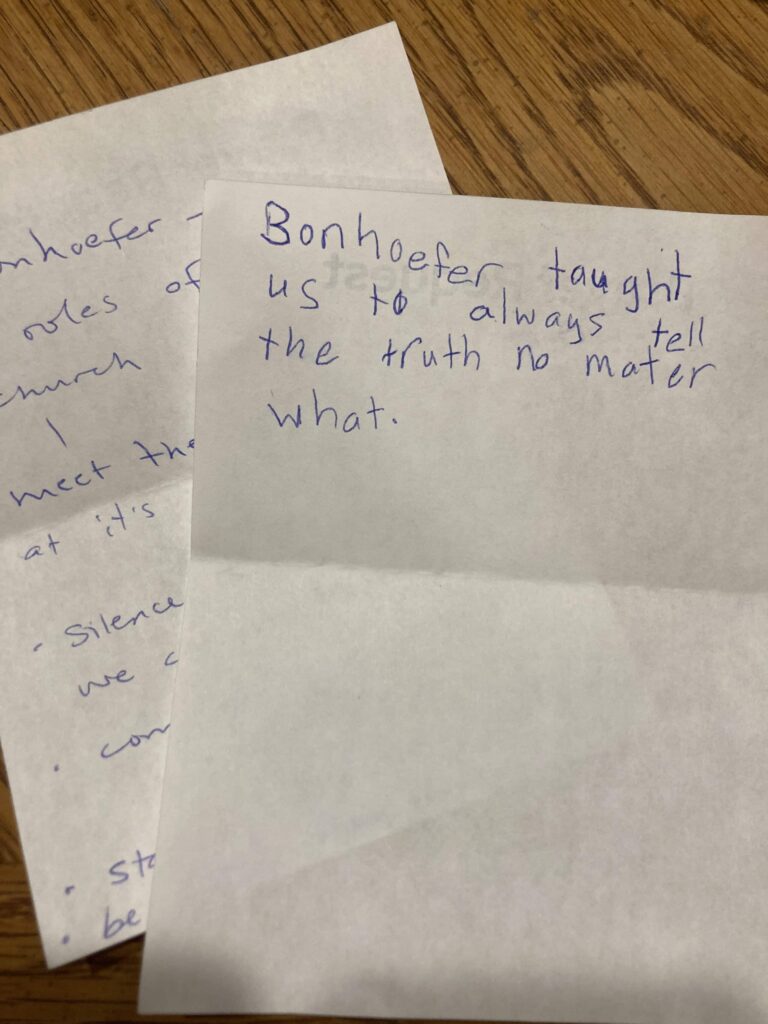 Bonhoefer taught
us to always tell
the truth no mater
what.
roles of
church
meet the
at it's
• Silence
we
• be